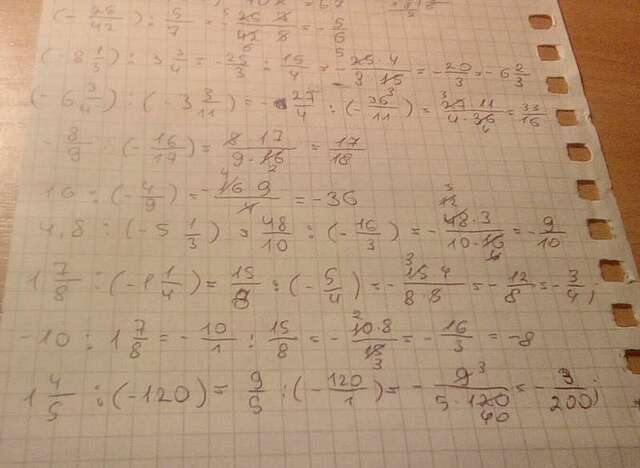 (- 25/42) : 5/7 = - 25 · 7 / 42 · 5 = - 5/6
(-8 1/3) : 3 3/4 = - 25/3 : 15/4 = - 25 · 4 / 3 · 15 = - 20/3 = -6 2/3
(-6 3/4) : (-3 3/11) = - 27/4 : (- 36/11) = 27 · 11 / 4 · 36 = 33/16
- 8/9 : (- 16/17) = 8 · 17 / 9 · 16 = 17/18
16 : (- 4/9) = - 16 · 9 / 4 = -36
4,8 : (-5 1/3) = 48/10 : (- 16/3) = - 48 · 3 / 10 · 16 = - 9/10
1 7/8 : (-1 1/4) = 15/8 : (- 5/4) = - 15 · 4 / 8 · 8 = - 12/8 = - 3/4;
-10 : 1 7/8 = - 10/1 : 15/8 = - 10 · 8 / 15 = - 16/3 = -8
1 4/5 : (-120) = 9/5 : (- 120/1) = - 9 / 5 · 120 = - 3/200;